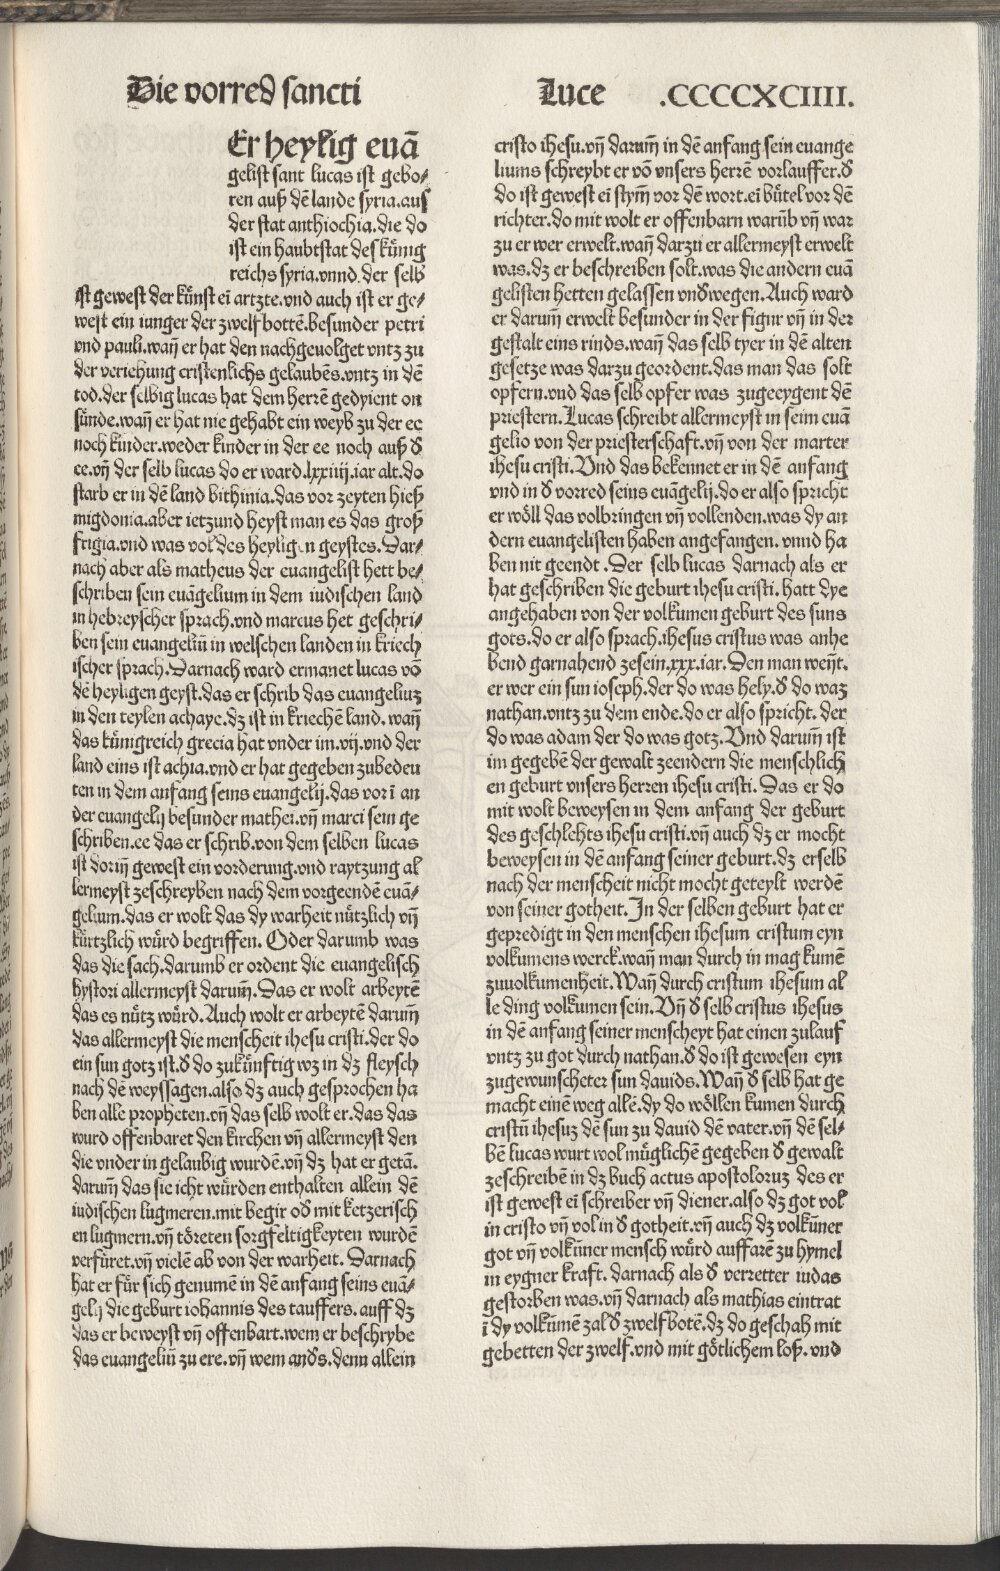 Die vorred sancti Luce .CCCCXCIIII.
Er heylig euā
gelist sant lucas ist gebo⸗
ren auß dē lande syria.aus
der stat anthiochia.die do
ist ein haubtstat des kúnig
reichs syria.vnnd der selb
ist gewest der kúnst eī artzte.vnd auch ist er ge⸗
west ein iunger der zwelfbottē.besunder petri
vnd pauli.wañ er hat den nachgeuolget vntz zu
der veriehung cristenlichs gelaubēs.vntz in dē
tod.der selbig lucas hat dem herrē gedyient on
súnde.wañ er hat nie gehabt ein weyb zu der ee
noch kinder.weder kinder in der ee noch auß d̕
ee.vñ der selb lucas do er ward.lxxiiij.iar alt.do
starb er in dē land bithinia.das vor zeyten hieß
migdonia.aber ietzund heyst man es das groß
frigia.vnd was vol des heyligen geystes.Dar⸗
nach aber als matheus der euangelist hett be⸗
schriben sein euāgelium in dem iudischen land
in hebreyscher sprach.vnd marcus het geschri⸗
ben sein euangeliū in welschen landen in kriech
ischer sprach.Darnach ward ermanet lucas vō
dē heyligen geyst.das er schrib das euangeliuz
in den teylen achaye.dz ist in kriechē land. wañ
das kúnigreich grecia hat vnder im.vij.vnd der
land eins ist achia.vnd er hat gegeben zubedeu
ten in dem anfang seins euangelij.das vor ī an
der euangelij besunder mathei.vñ marci sein ge
schriben.ee das er schrib.von dem selben lucas
ist doriñ gewest ein vorderung.vnd raytzung al
lermeyst zeschreyben nach dem vorgeendē euā⸗
gelium.das er wolt das dy warheit nútzlich vñ
kúrtzlich wúrd begriffen. Oder darumb was
das die sach.darumb er ordent die euangelisch
hystori allermeyst darum̄.Das er wolt arbeytē
das es nútz wúrd.Auch wolt er arbeytē darum̄
das allermeyst die menscheit ihesu cristi.der do
ein sun gotz ist.d̕ do zukúnftig wz in dz fleysch
nach dē weyssagen.also dz auch gesprochen ha
ben alle propheten.vñ das selb wolt er.das das
wurd offenbaret den kirchen vñ allermeyst den
die vnder in gelaubig wurdē.vñ dz hat er getā.
darum̄ das sie icht wúrden enthalten allein dē
iudischen lugmeren.mit begir od̕ mit ketzerisch
en lugmern.vñ tóreten sorgfeltigkeyten wurdē
verfúret.vñ vielē ab von der warheit. Darnach
hat er fúr sich genumē in dē anfang seins euā⸗
gelij die geburt iohannis des tauffers. auff dz
das er beweyst vñ offenbart.wem er beschrybe
das euangeliū zu ere.vñ wem and̕s.denn allein
cristo ihesu.vñ darum̄ in dē anfang sein euange
liums schreybt er vō vnsers herrē vorlauffer.d̕
do ist gewest eī stym̄ vor dē wort.eī bútel vor dē
richter.do mit wolt er offenbarn warūb vñ war
zu er wer erwelt.wañ darzu er allermeyst erwelt
was.dz er beschreiben solt.was die andern euā
gelisten hetten gelassen vnd̕wegen.Auch ward
er darum̄ erwelt besunder in der figur vñ in der
gestalt eins rinds.wañ das selb tyer in dē alten
gesetze was darzu geordent.das man das solt
opfern.vnd das selb opfer was zugeeygent dē
priestern.Lucas schreibt allermeyst in seim euā
gelio von der priesterschaft.vñ von der marter
ihesu cristi.Vnd das bekennet er in dē anfang
vnd in d̕ vorred seins euāgelij.do er also spricht
er wóll das volbringen vñ vollenden.was dy an
dern euangelisten haben angefangen. vnnd ha
ben nit geendt .Der selb lucas darnach als er
hat geschriben die geburt ihesu cristi. hatt dye
angehaben von der volkumen geburt des suns
gots.do er also sprach.ihesus cristus was anhe
bend garnahend zesein.xxx.iar.Den man weyñt.
er wer ein sun ioseph.der do was hely.d̕ do waz
nathan.vntz zu dem ende.do er also spricht. der
do was adam der do was gotz.Vnd darum̄ ist
im gegebē der gewalt zeendern die menschlich
en geburt vnsers herren ihesu cristi. Das er do
mit wolt beweysen in dem anfang der geburt
des geschlehts ihesu cristi.vñ auch dz er mocht
beweysen in dē anfang seiner geburt.dz erselb
nach der menscheit nicht mocht geteylt werdē
von seiner gotheit. In der selben geburt hat er
gepredigt in den menschen ihesum cristum eyn
volkumens werck.wañ man durch in mag kumē
zuuolkumenheit.Wañ durch cristum ihesum al
le ding volkumen sein.Vñ d̕ selb cristus ihesus
in dē anfang seiner menscheyt hat einen zulauf
vntz zu got durch nathan.d̕ do ist gewesen eyn
zugewunscheter sun dauids.Wañ d̕ selb hat ge
macht einē weg allē.dy do wóllen kumen durch
cristū ihesuz dē sun zu dauid dē vater.vñ dē sel⸗
bē lucas wurt wol múglichē gegeben d̕ gewalt
zeschreibē in dz buch actus apostoloruz des er
ist gewest eī schreiber vñ diener.also dz got vol
in cristo vñ vol in d̕ gotheit.vñ auch dz volkūner
got vñ volkūner mensch wúrd auffarē zu hymel
in eygner kraft. darnach als d̕ verretter iudas
gestorben was.vñ darnach als mathias eintrat
ī dy volkumē zal d̕ zwelfbotē.dz do geschah mit
gebetten der zwelf.vnd mit gótlichem loß. vnd